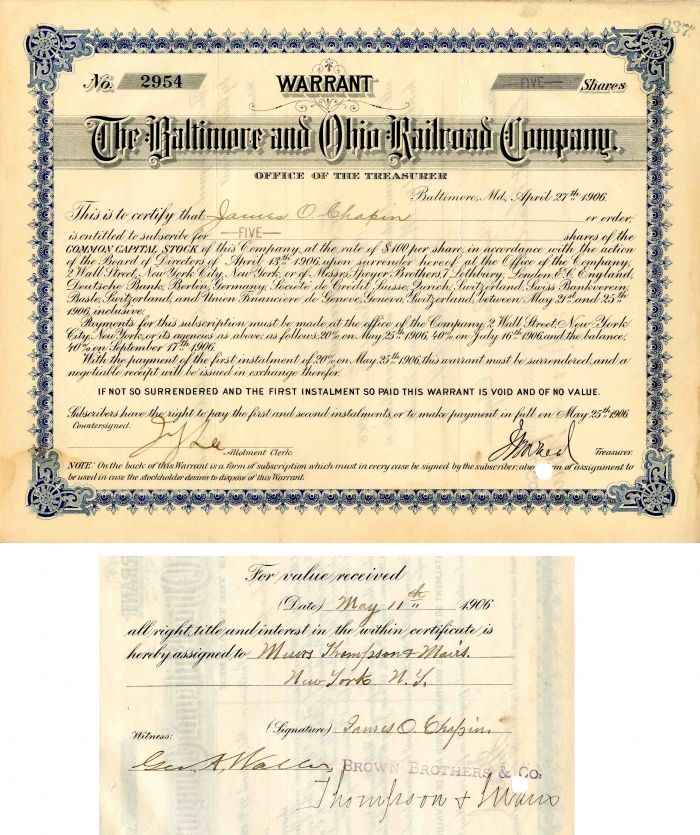 937
No. 2954 WARRANT FIVE Shares
The Baltimore and Ohio Railroad Company.
OFFICE OF THE TREASURER
Baltimore, Md., April 27th 1906.
This is to certify that James O. Chapin or order,
is entitled to subscribe for FIVE shares of the
COMMON CAPITAL STOCK of this Company, at the rate of $100 per share, in accordance with the action
of the Board of Directors of April 13th 1906, upon surrender hereof at the Office of the Company,
2 Wall Street, New York City, New York, or of Messrs Speyer Brothers, 7 Lothbury, London, E.C. England,
Deutsche Bank, Berlin, Germany, Societe de Credit Suisse, Zurich, Switzerland, Swiss Bankverein,
Basle, Switzerland, and Union Financiere de Geneve, Geneva, Switzerland, between May 21st and 25th
1906, inclusive.
Payments for this subscription must be made at the office of the Company, 2 Wall Street, New York
City, New York, or its agencies as above, as follows: 20% on May 25th 1906, 40% on July 16th 1906, and the balance,
40% on September 17th 1906.
With the payment of the first instalment of 20% on May 25th 1906, this warrant must be surrendered, and a
negotiable receipt will be issued in exchange therefor.
IF NOT SO SURRENDERED AND THE FIRST INSTALMENT SO PAID THIS WARRANT IS VOID AND OF NO VALUE.
Subscribers have the right to pay the first and second instalments, or to make payment in full on May 25th 1906.
Countersigned.
Allotment Clerk. Treasurer.
NOTE: On the back of this Warrant is a form of subscription which must in every case be signed by the subscriber, also form of assignment to
be used in case the stockholder desires to dispose of this Warrant.
For value received
(Date) May 11th 1906
all right, title and interest in the within certificate is
hereby assigned to Messrs Thompson & Mairs.
New York N.Y.
(Signature) James O. Chapin
Witness:
Geo. A. Waller BROWN BROTHERS & Co.
Thompson & Mairs